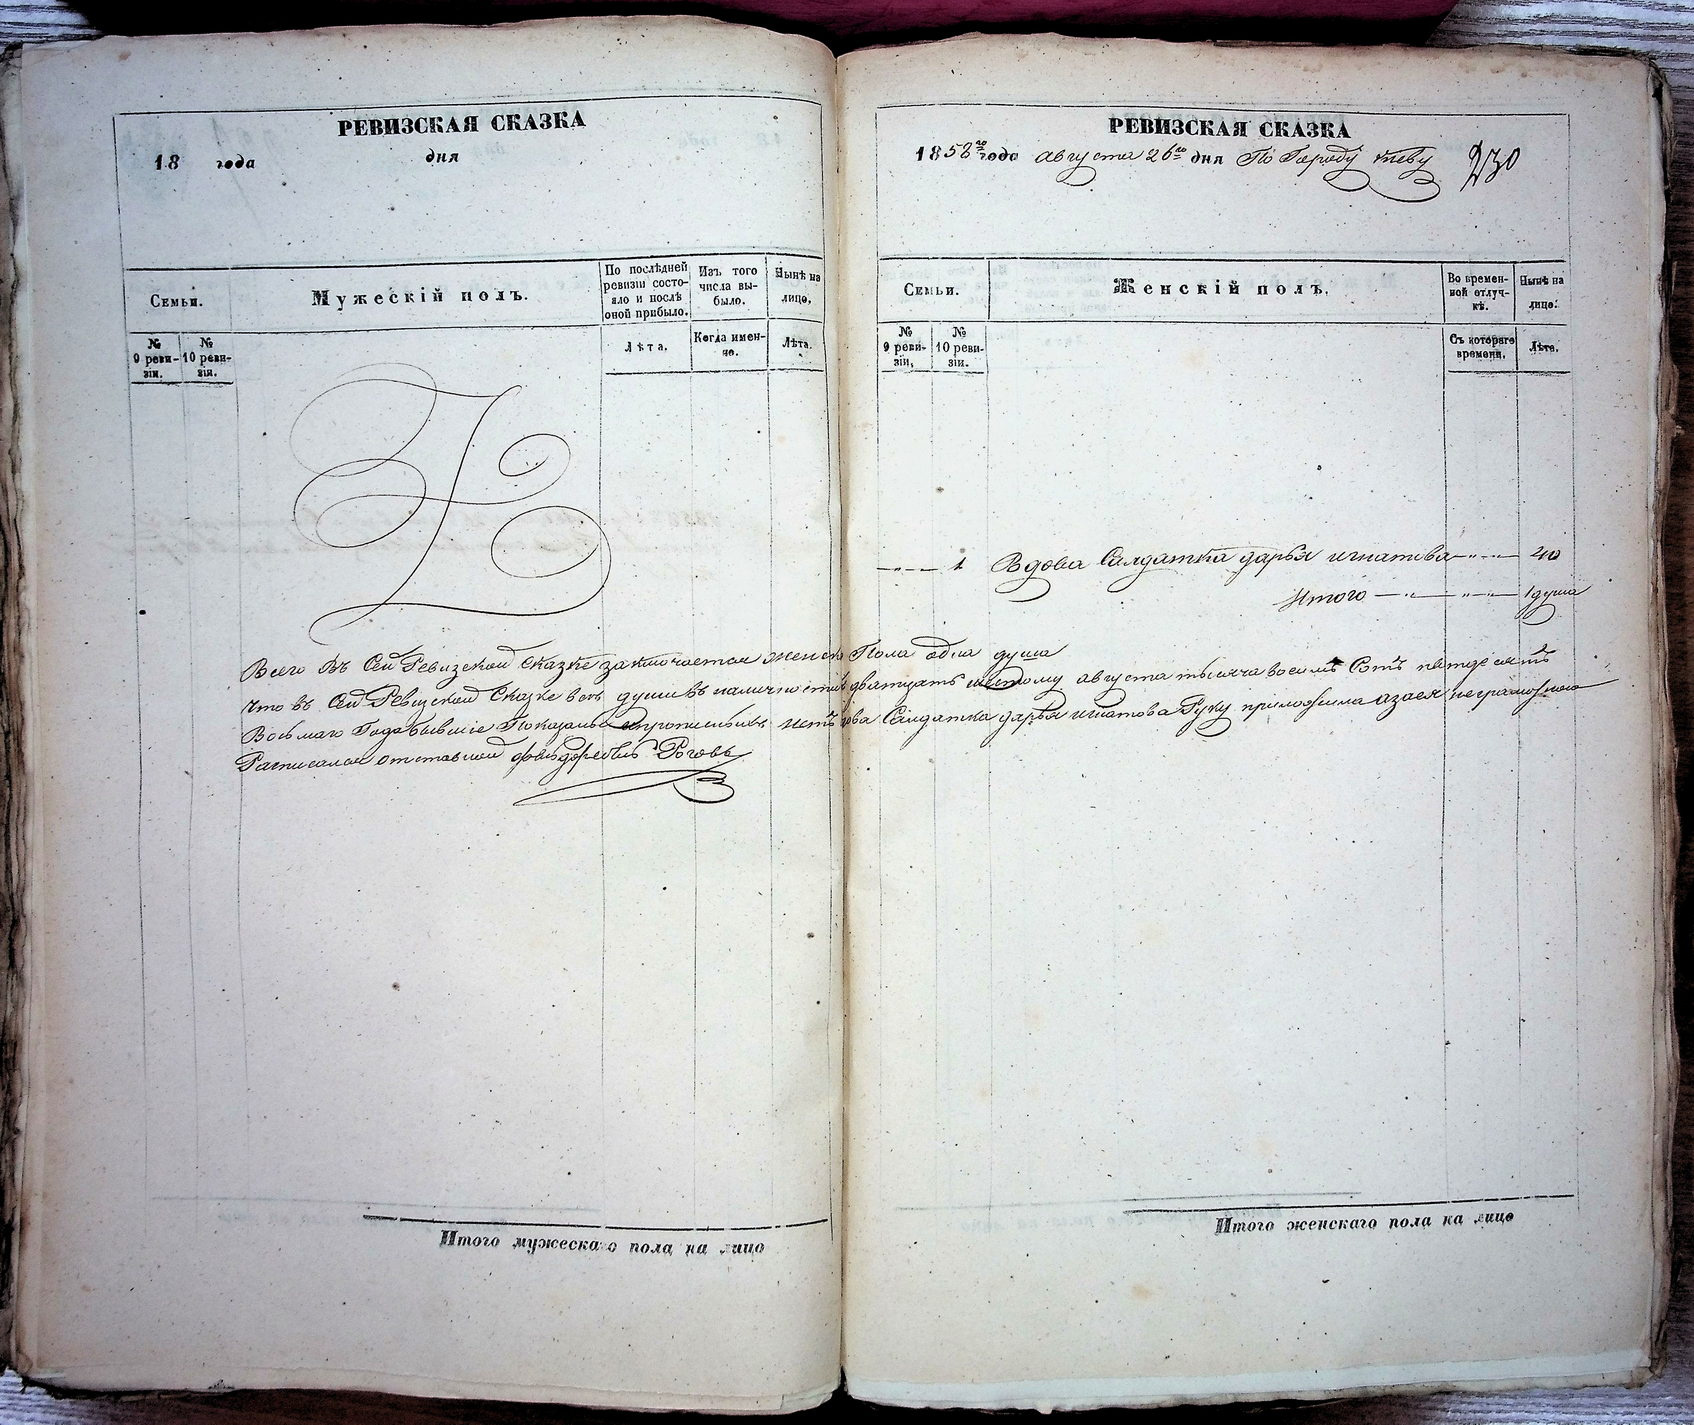 РЕВИЗСКАЯ СКАЗКА
18 года дня
Семьи.
Мужескій полъ.
По послѣдней ревизіи состояло и послѣ оной прибыло.
Изъ того числа выбыло.
Нынѣ на лицо,
№ 9 ревизіи.
№ 10 ревизіи.
Лѣта.
Когда именно.
Лѣта.
РЕВИЗСКАЯ СКАЗКА
1858го года августа 26го дня По Городу Кіеву 230
Семьи.
Женскій полъ.
Во временной отлучкѣ.
Нынѣ на лице.
№ 9 ревизіи,
№ 10 ревизіи.
Съ котораго времени.
Лѣта.
1 Вдова Салдатка дарья игнатова 40
Итого 1 душа
Всего Въ Сей Ревизской Сказке заключается женска Пола одна душа
что въ Сей Ревизской Сказке все души въ наличности дватцать шестому августа тысяча восемь Сотъ пятдесятъ
Восьмаго Года бывшие Показаны и пропи нетъ Салдатка дарья игнатова Руку приложила а за ея неграмотною
Расписался отставной Роговъ
Итого мужескаго пола на лицо
Итого женскаго пола на лицо